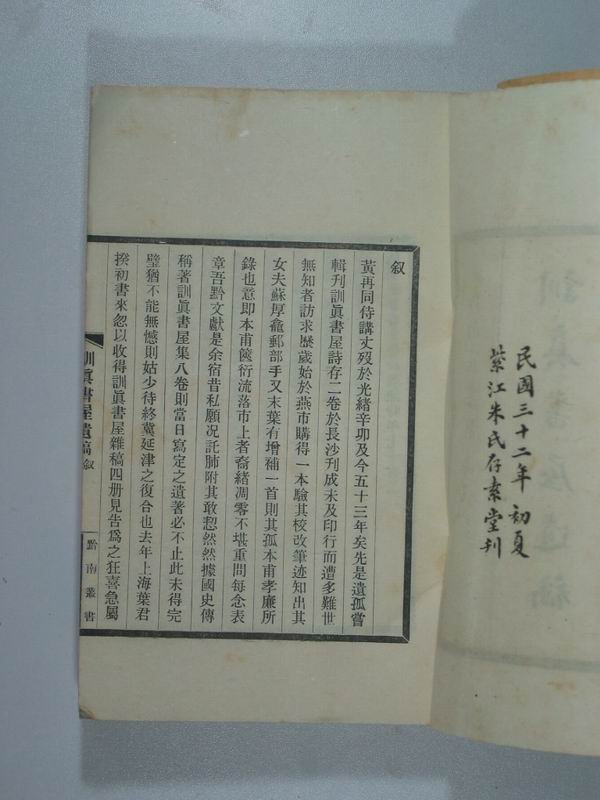 民國三十二年初夏
紫江朱氏存素堂刊
叙
黃再同侍講丈歿於光緒辛卯及今五十三年矣先是遺孤嘗
輯刊訓眞書屋詩存二卷於長沙刊成未及印行而遭多難世
無知者訪求歷歲始於燕市購得一本驗其校改筆迹知出其
女夫蘇厚龕郵部手又末葉有增補一首則其孤本甫孝廉所
錄也意即本甫篋衍流落市上者裔緒凋零不堪重問每念表
章吾黔文獻是余宿昔私願况託肺附其敢恝然然據國史傳
稱著訓眞書屋集八卷則當日寫定之遺著必不止此未得完
璧猶不能無憾則姑少待終冀延津之復合也去年上海葉君
揆初書來忽以收得訓眞書屋雜稿四册見告爲之狂喜急屬
訓眞書屋遺稿 叙
黔南叢書